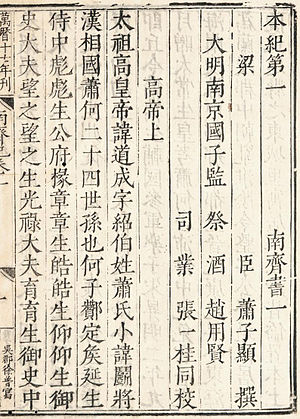 本紀第一　南齊書一
梁　臣　蕭子顯　撰
大明南京國子監　祭　酒　趙用賢
司　業　張一桂同校
高帝上
太祖高皇帝諱道成字紹伯姓蕭氏小諱鬭將
漢相國蕭何二十四世孫也何子酇定侯延生
侍中彪彪生公府掾章章生皓皓生仰仰生御
史大夫望之望之生光祿大夫育育生御史中
萬曆十七年刊
南齊紀卷一
一
吳郡徐普寫